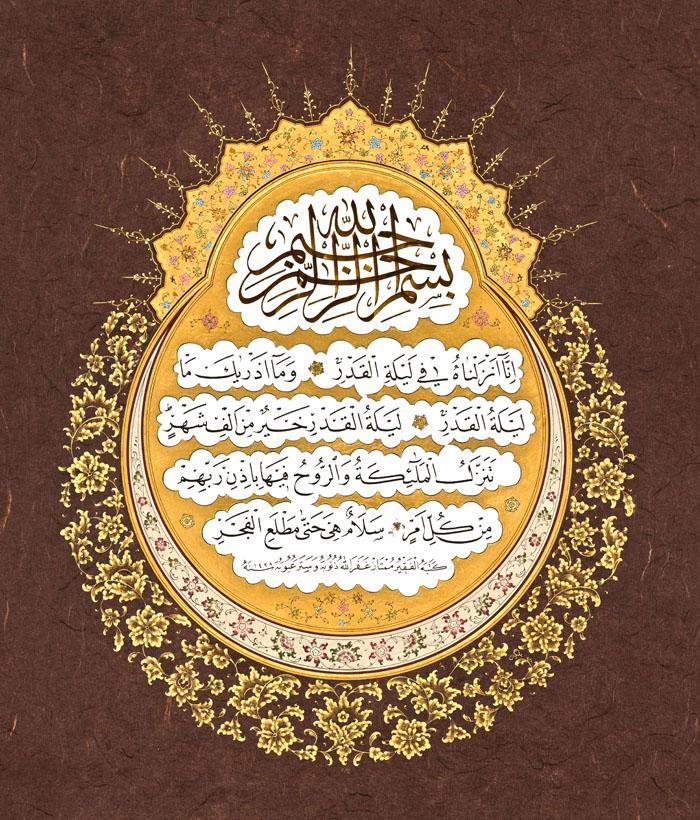 بِسْمِ اللهِ الرَّحْمٰنِ الرَّحِيمِ
اِنَّا اَنْزَلْنَاهُ فِي لَيْلَةِ الْقَدْرِ وَمَا اَدْرٰيكَ مَا
لَيْلَةُ الْقَدْرِ لَيْلَةُ الْقَدْرِ خَيْرٌ مِنْ اَلْفِ شَهْرٍ
تَنَزَّلُ الْمَلٰئِكَةُ وَالرُّوحُ فِيهَا بِاِذْنِ رَبِّهِمْ
مِنْ كُلِّ اَمْرٍ سَلَامٌ هِيَ حَتّٰى مَطْلَعِ الْفَجْرِ
كتبه الفقير ممتاز غفر الله ذنوبه وستر عيوبه سنه